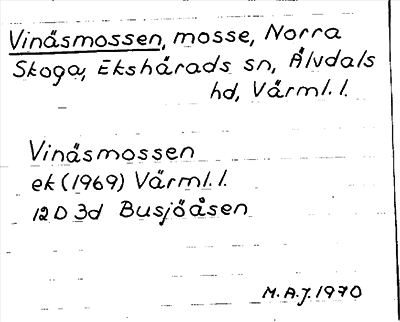 Vinäsmossen, mosse, Norra
Skoga, Ekshärads sn, Älvdals
hd, Värml. l.
Vinäsmossen
ek (1969) Värml. l.
12 D 3d Busjöåsen
M.A.J. 1970